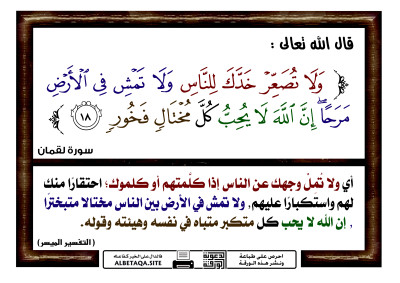 قال الله تعالى :
﴿ وَلَا تُصَعِّرْ خَدَّكَ لِلنَّاسِ وَلَا تَمْشِ فِي الْأَرْضِ
مَرَحًا ۖ إِنَّ اللَّهَ لَا يُحِبُّ كُلَّ مُخْتَالٍ فَخُورٍ ﴿١٨﴾ ﴾
سورة لقمان
أي ولا تُمِلْ وجهك عن الناس إذا كلَّمتهم أو كلموك؛ احتقارًا منك
لهم واستكبارًا عليهم، ولا تمش في الأرض بين الناس مختالا متبخترًا
، إن الله لا يحب كل متكبر متباه في نفسه وهيئته وقوله.
( التفسير الميسر )
احرص على طباعة
ونشر هذه الورقة
ALBETAQA.SITE